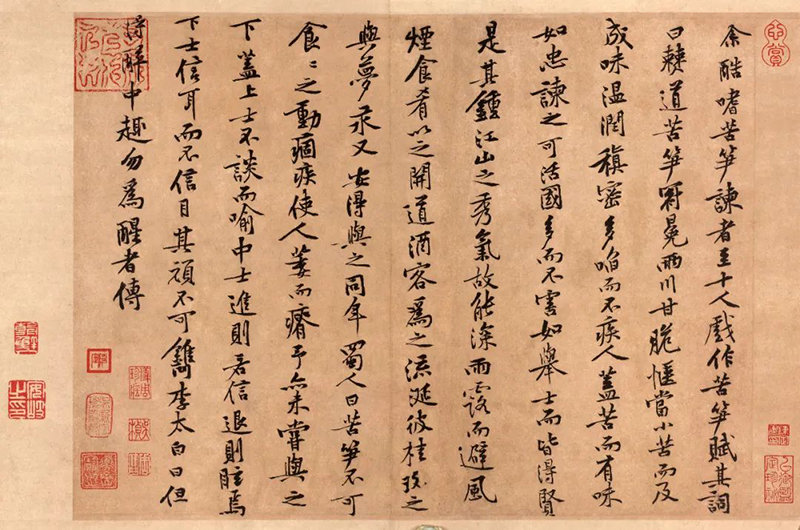 余酷嗜苦笋諫者至十人戲作苦笋賦其詞
曰僰道苦笋冠冕兩川甘脆愜當小苦而及
成味温潤稹密多啗而不疾人蓋苦而有味
如忠諫之可活國多而不害如舉士而皆得賢
是其鍾江山之秀氣故能深雨露而避風
煙食肴以之開道酒客爲之流涎彼桂玫之
與夢汞又安得與之同年蜀人曰苦笋不可
食〻之動痼疾使人萎而瘠予亦未嘗與之
下蓋上士不談而喻中士進則若信退則眩焉
下士信耳而不信目其頑不可鐫李太白曰但
得醉中趣勿爲醒者傳